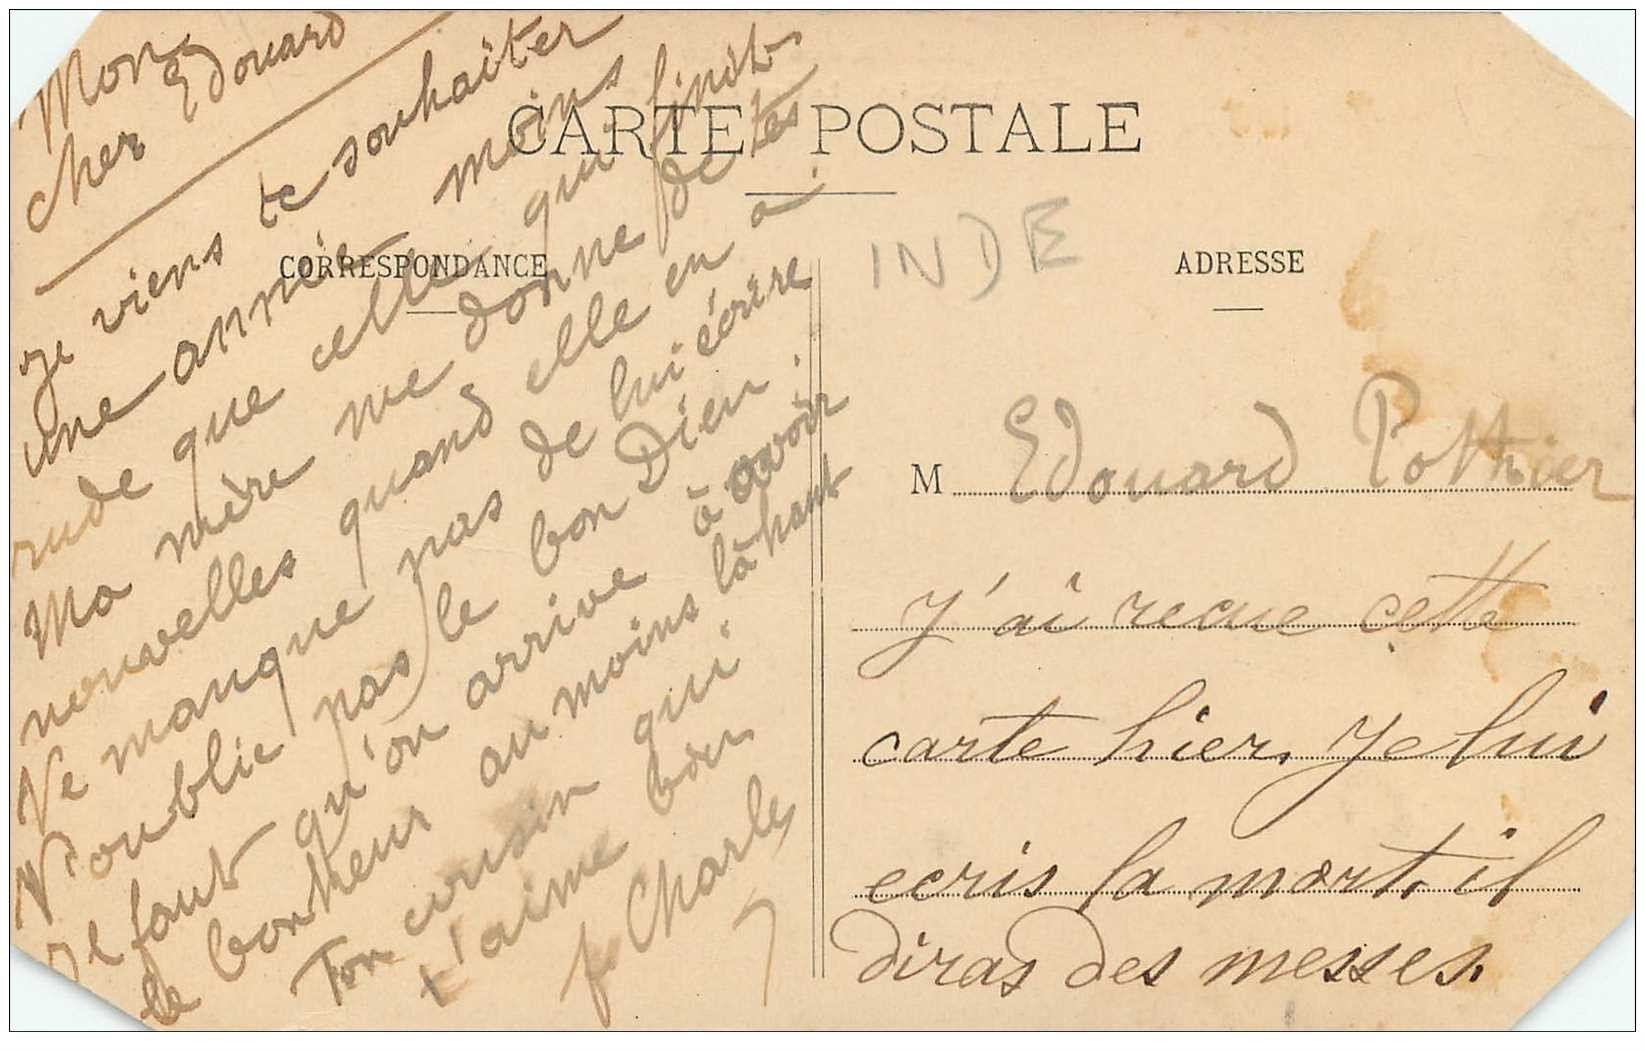 CARTE POSTALE
CORRESPONDANCE
ADRESSE
INDE
Mon
cher Edouard
je viens te souhaiter
une année moins
rude que celle qui finit
Ma mère me donne de tes
nouvelles quand elle en a.
Ne manque pas de lui écrire
N'oublie pas le bon Dieu.
Il faut qu'on arrive à avoir
le bonheur au moins là haut
Ton cousin qui
t'aime bien
f. Charles
M Edouard Pothier
J'ai recue cette
carte hier. Je lui
ecris la mort. il
diras des messes.